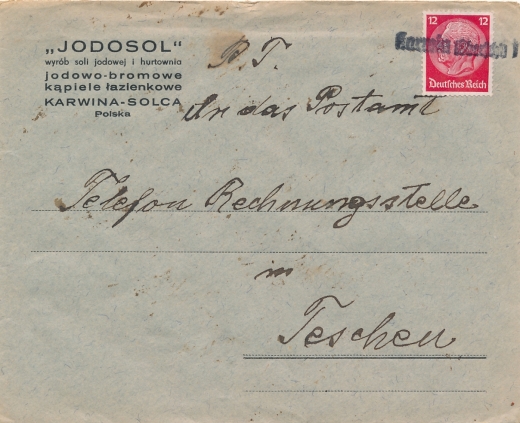 „JODOSOL“
wyrób soli jodowej i hurtownia
jodowo-bromowe
kąpiele łazienkowe
KARWINA-SOLCA
Polska
P. T.
An das Postamt
12 12
Deutsches Reich
Telefon Rechnungsstelle
in
Teschen